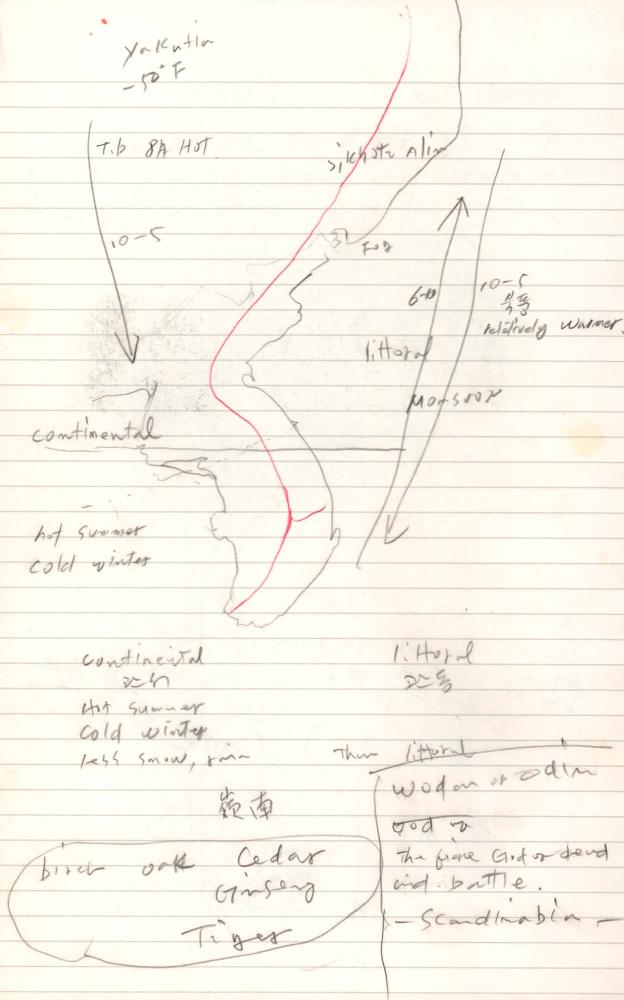 Yakutia
-50° F
T.b 8A HOT
Sikhote Alin
10-5
Fog
6-10
10-5
북풍
relatively warmer.
littoral
Monsoon
continental
hot summer
cold winter
continental
littoral
Hot summer
cold winter
less snow, rain
Than littoral
嶺南
Wodan or Odin
God
The fierce God of dead
and battle.
- Scandinabia -
birch oak Cedar
Ginseng
Tiger